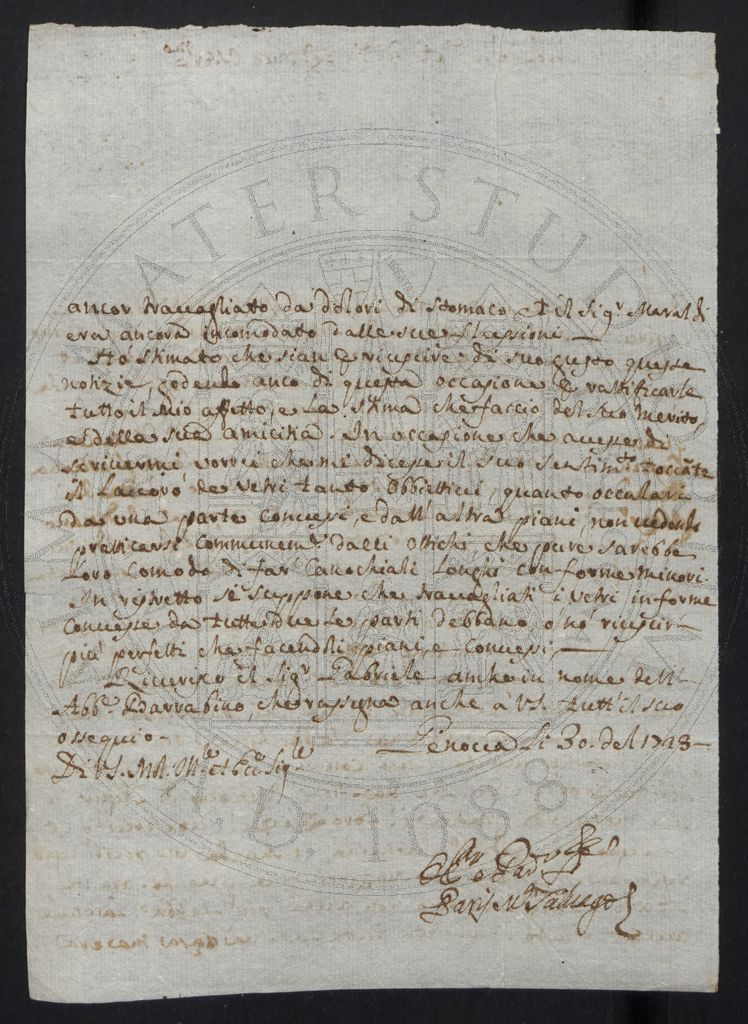 ancor travagliato da dolori di stomaco et il Sig.r Maraldi
era ancora incomodato dalle sue flussioni —
Hò stimato che sian p riuscire di suo gusto queste
notizie, godendo anco di questa occasione p rattificarle
tutto il mio affetto, e la stima che faccio del suo merito
e della sua amicitia. In occasione che avesse di
scrivermi vorrei che mi dicesse il suo sentim.to toccāte
il lavoro de vetri tanto obbiettivi, quanto occulari
da una parte convessi, e dall'altra piani, non vedendo
pratticarsi communem.te dalli ottichi, che pure sarebbe
loro comodo di far Canochiali longhi con forme minori.
In ristretto se suppone che travagliati i vetri in forme
convesse da tutte due le parti debbano, ò nò riuscir
più perfetti che facendoli piani, e convessi, —
Riverisco il Sig.r Gabriele anche in nome dell'
Abb.e Barrabino, che rassegna anche à V.S. tutt'il suo
ossequio —
Genova li 30. del 1723 —
Di V.S. Mol. Ill.re et Ecc. Sig.re
Paris M.a Salvago
ALMA MATER STUDIORUM
A.D. 1088